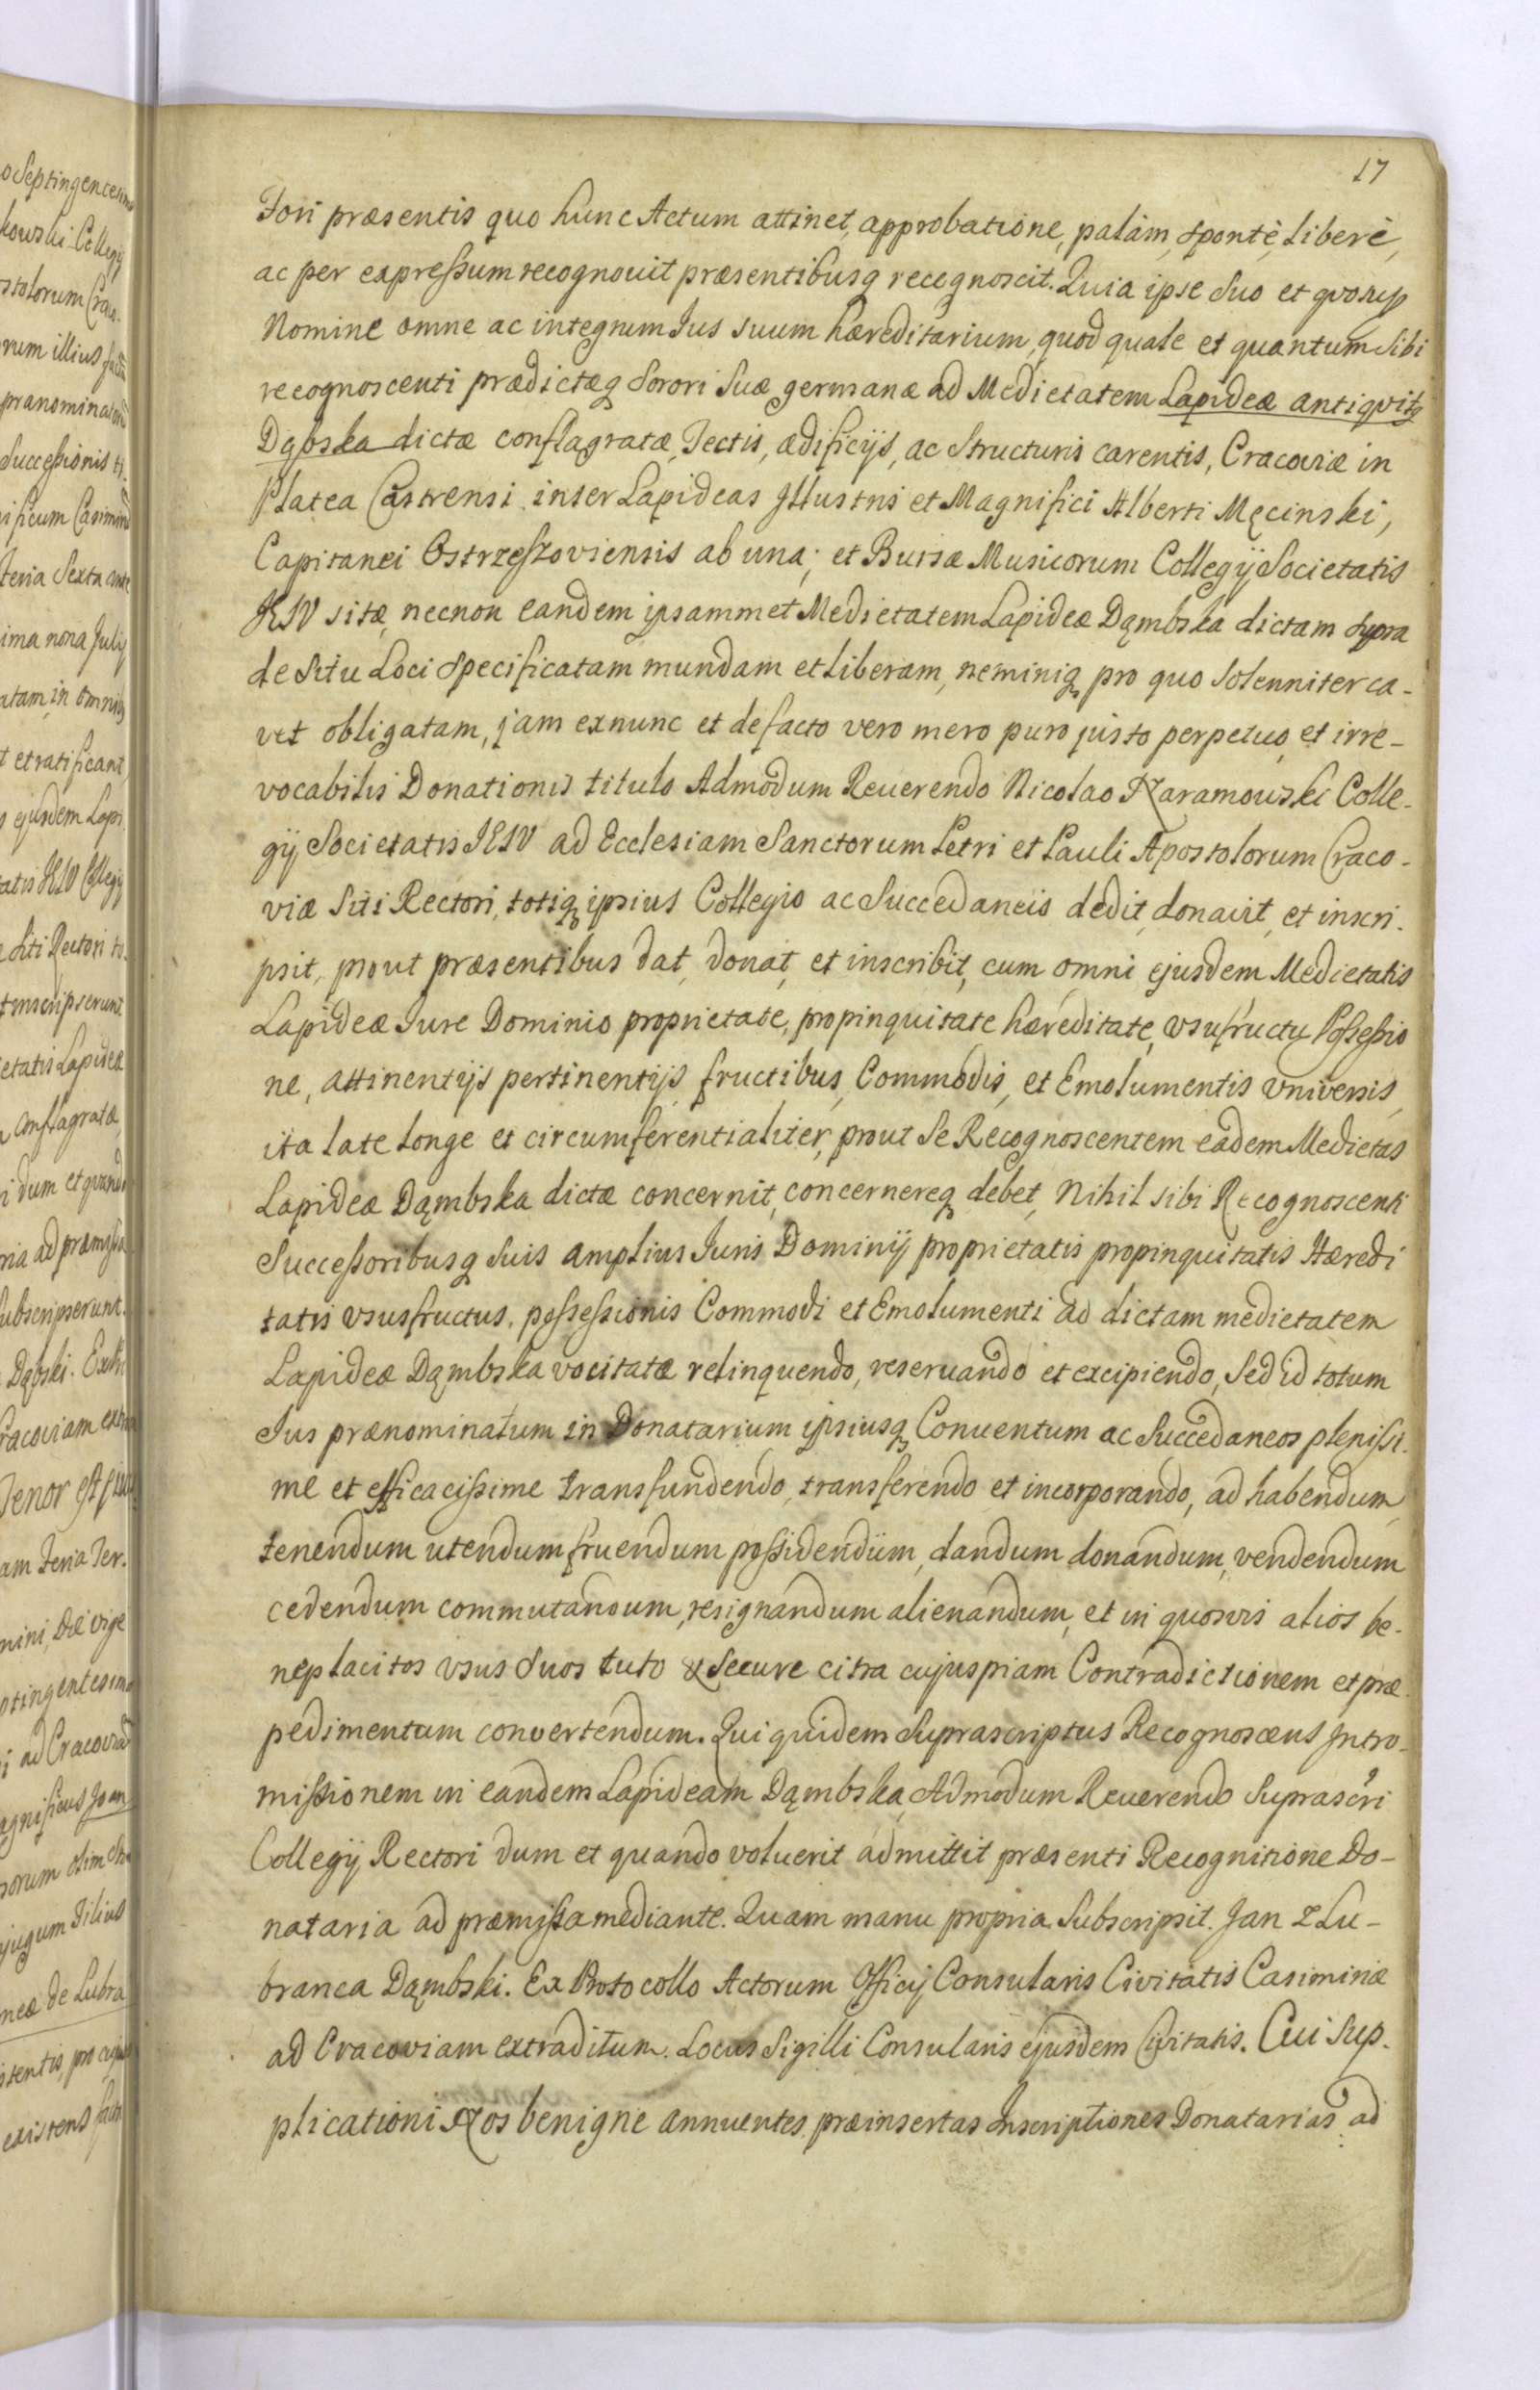 17
Fori præsentis quo hunc Actum attinet, approbatione, palàm, spontè, liberè,
ac per expreſsum recognouit præsentibusq recognoscit. Quia ipse Suo et quosup
Nomine omne ac integrum Jus suum hæreditarium, quod quale et quantum sibi
recognoscenti prædictæq Sorori Suæ germanæ ad Medietatem Lapideæ antiqvitq
Dąbska dictæ conflagratæ, Tectis, ædificijs, ac Structuris carentis, Cracoviæ in
Platea Castrensi inter Lapideas Jllustris et Magnifici Alberti Męcinski,
Capitanei Ostrzeſzoviensis ab una; et Bursæ Musicorum Collegij Societatis
JESV sitæ, necnon eandem ipsammet Medietatem Lapideæ Dąmbska dictam supra
de Situ Loci Specificatam mundam et liberam, neminiq pro quo Solenniter ca-
vet obligatam, jam exnunc et de facto vero mero puro justo perpetuo et irre-
vocabilis Donationis titulo Admodum Reuerendo Nicolao Naramowski Colle-
gij Societatis JESV ad Ecclesiam Sanctorum Petri et Pauli Apostolorum Craco-
viæ Siti Rectori, totiq ipsius Collegio ac Succedaneis dedit, donavit, et inscri-
psit, prout præsentibus dat, donat, et inscribit, cum omni ejusdem Medietatis
Lapideæ Jure Dominio proprietate, propinquitate hæreditate, vsufructu Poſseſsio
ne, attinentijs pertinentijs fructibus, Commodis, et Emolumentis vniversis,
ita late longe et circumferentialiter, prout Se Recognoscentem eadem Medietas
Lapideæ Dąmbska dictæ concernit, concernereq debet, Nihil sibi Recognoscenti
Succeſsoribusq Suis amplius Juris Dominij proprietatis propinquitatis Hæredi
tatis vsusfructus, poſseſsionis Commodi et Emolumenti ad dictam medietatem
Lapideæ Dąmbska vocitatæ relinquendo, reseruando et excipiendo, Sed id totum
Jus prænominatum in Donatarium ipsiusq Conuentum ac Succedaneos pleniſsi-
me et efficaciſsime transfundendo, transferendo et incorporando, ad habendum,
tenendum utendum fruendum poſsidendum, dandum donandum, vendendum
cedendum commutandum, resignandum alienandum, et in quosvis alios be-
neplacitos vsus Suos tuto & Secure citra cujuspiam Contradictionem et præ
pedimentum convertendum. Qui quidem Suprascriptus Recognoscens Jntro-
miſsionem in eandem Lapideam Dąmbska Admodum Reuerendo Suprascri
Collegij Rectori dum et quando voluerit admittit præsenti Recognitione Do-
nataria ad præmiſsa mediante. Quam manu propria Subscripsit. Jan z Lu-
branca Dąmbski. Ex Protocollo Actorum Officij Consularis Civitatis Casimiriæ
ad Cracoviam extraditum. Locus Sigilli Consularis ejusdem Civitatis. Cui Sup-
plicationi Nos benigne annuentes præinsertas Inscriptiones Donatarias ad